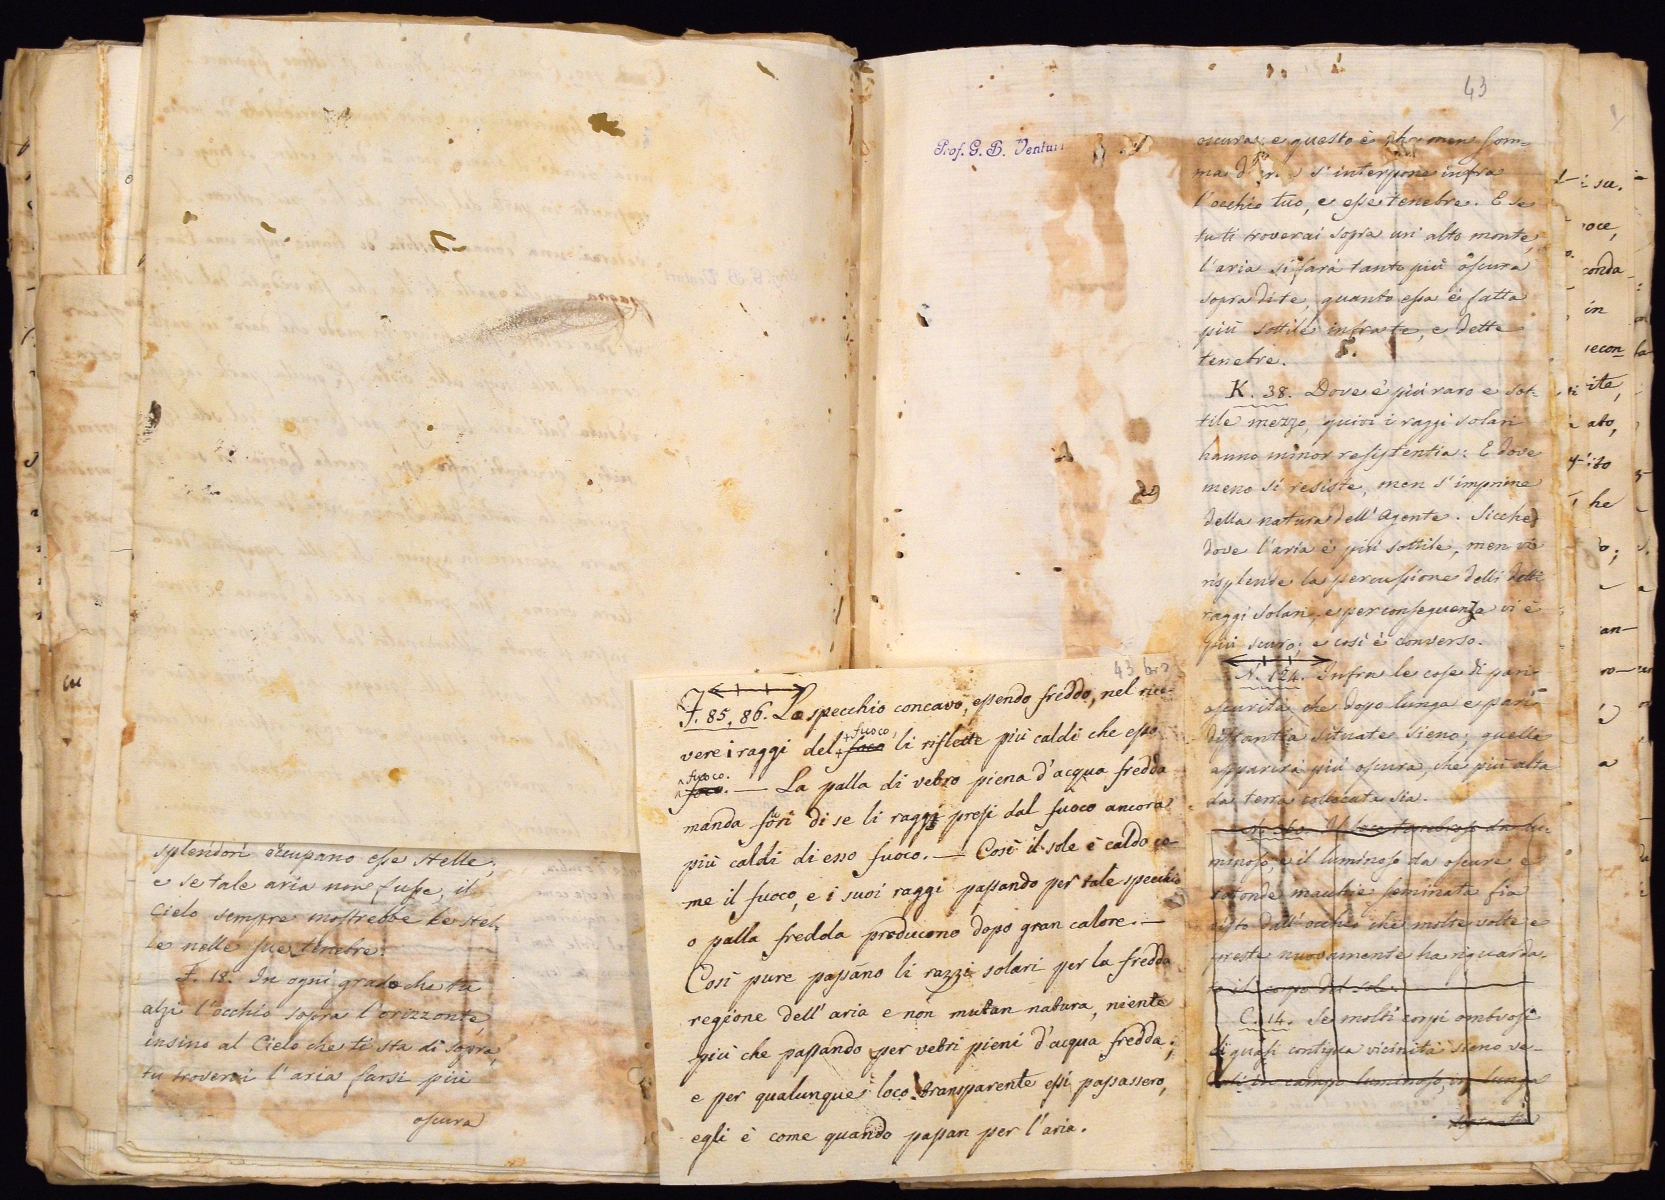 splendori occupano esse stelle;
e se tale aria non fusse, il
Cielo sempre mostrebbe le stel-
le nelle sue tenebre.
F. 18. In ogni grado che tu
alzi l'occhio sopra l'orizzonte
insino al Cielo che ti sta di sopra,
tu troverai l'aria farsi più
oscura
43 bis
F. 85, 86. Lo specchio concavo, essendo freddo, nel rice-
vere i raggi del fuoco, li riflette più caldi che esso
fuoco. — La palla di vetro piena d'acqua fredda
manda fuori di se li raggi presi dal fuoco ancora
più caldi di esso fuoco. — Così il sole è caldo co-
me il fuoco, e i suoi raggi passando per tale specchio
o palla fredda producono dopo gran calore. —
Così pure passano li razzi solari per la fredda
regione dell'aria e non mutan natura, niente
più che passando per vetri pieni d'acqua fredda;
e per qualunque loco transparente essi passassero,
egli è come quando passan per l'aria.
Prof. G. B. Venturi
43
oscura: e questo è che men som-
ma s'interpone infra
l'occhio tuo, e esse tenebre. E se
tu ti troverai sopra un'alto monte,
l'aria si farà tanto più oscura
sopra di te, quanto essa è fatta
più sottile infra te, e dette
tenebre.
K. 38. Dove è più raro e sot-
tile mezzo, quivi i raggi solari
hanno minor resistentia: E dove
meno si resiste, men s'imprime
della natura dell'Agente. Sicchè
dove l'aria è più sottile, men vi
risplende la percussione delli detti
raggi solari, e per conseguenza vi è
più scuro; e così è converso.
N. 124. Infra le cose di pari
oscurità, che dopo lunga e pari
distantia situate sieno, quella
apparirà più oscura, che più alta
da terra collocata sia.
minoso, e il luminoso da oscure e
rotonde macchie seminata fia
visto dall'occhio che molte volte e
preste nuovamente ha riguarda-
to il corpo del sole.
C. 14. Se molti corpi ombrosi
di quasi contigua vicinità sieno ve-
duti in campo luminoso, in lunga